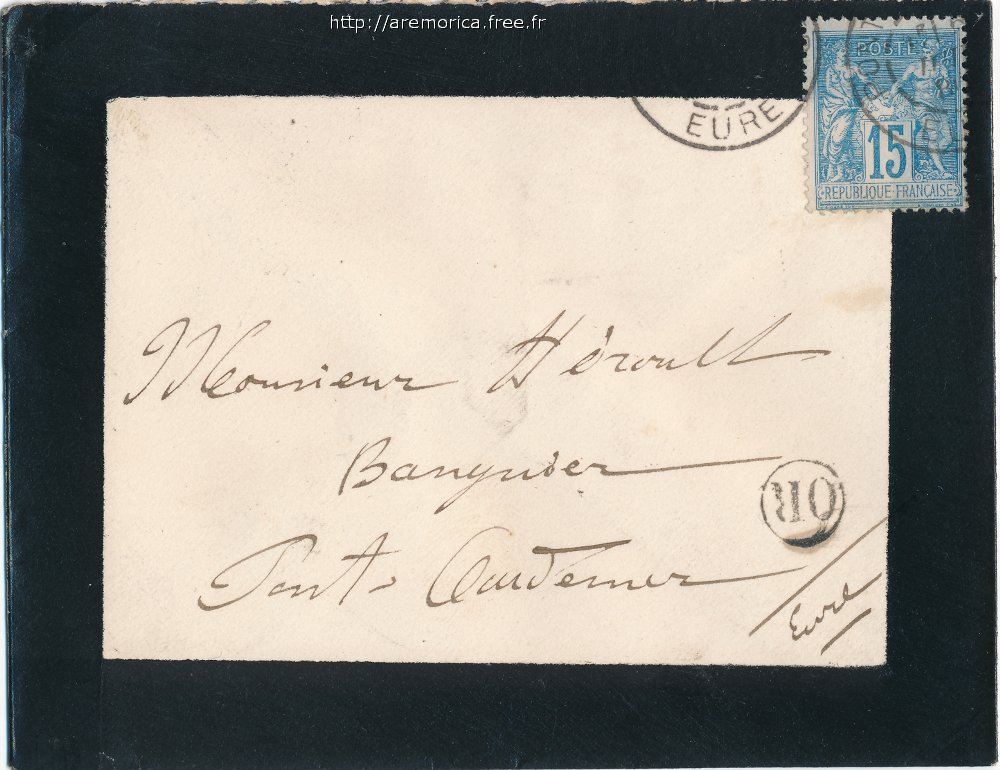 http://aremorica.free.fr
POSTE
EURE
15
REPUBLIQUE FRANÇAISE
Monsieur Héroult
Banquier
OR
Pont-Audemer
Eure